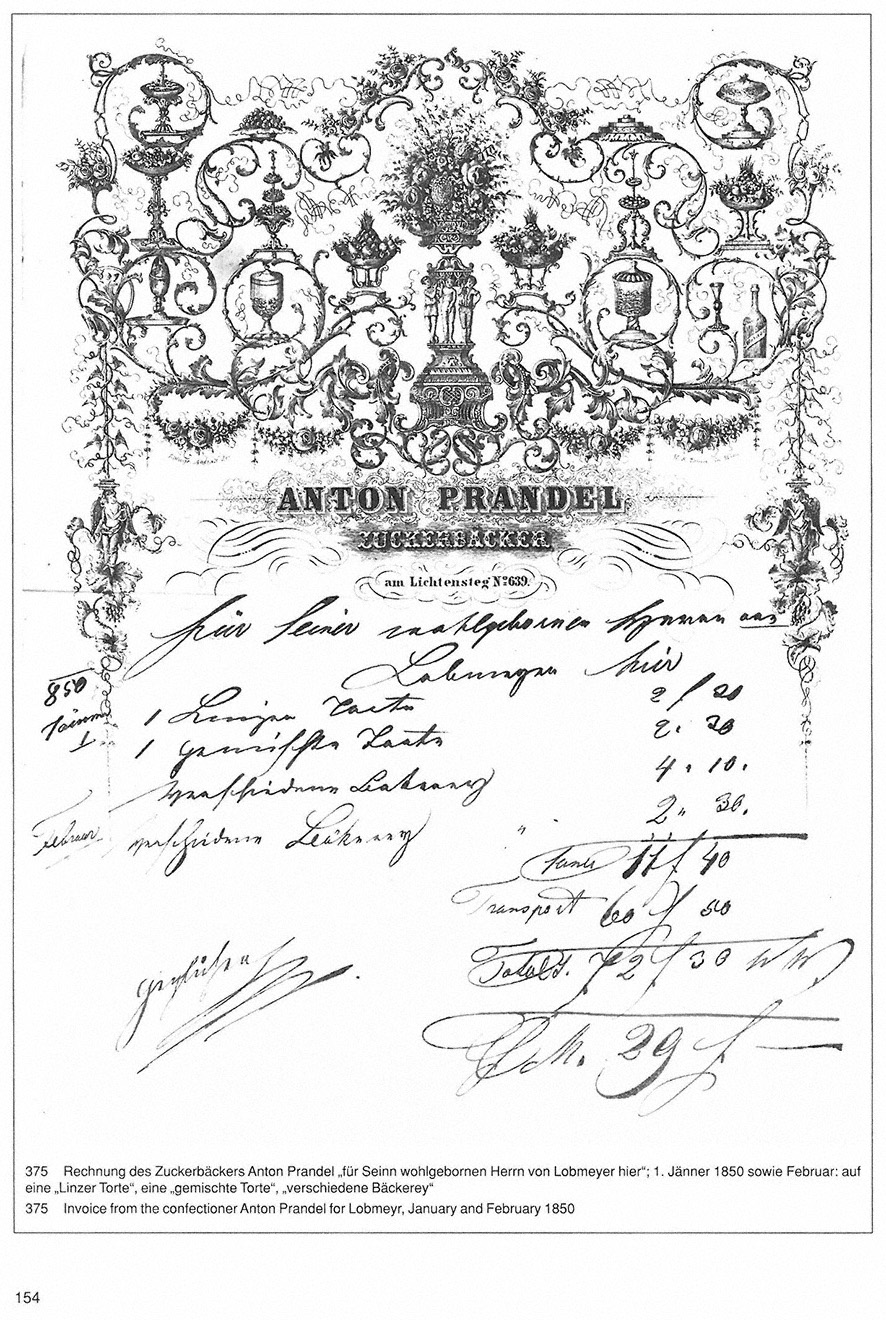 ANTON PRANDEL
ZUCKERBÄCKER
am Lichtensteg No 639.
für Seiner wohlgebornen Herrn von
Lobmeyer hier
850
1 Linzer Torte 2 f 20
Jänner
1
1 gemischte Torte 2. 30
verschiedene Bäkerey 4. 10.
Februar verschiedene Bäkerey " 2" 30.
11 f 40
Transport 60 f 50
Total 72 f 30 WW
CM. 29 f —
375 Rechnung des Zuckerbäckers Anton Prandel „für Seinn wohlgebornen Herrn von Lobmeyer hier“; 1. Jänner 1850 sowie Februar: auf
eine „Linzer Torte“, eine „gemischte Torte“, „verschiedene Bäckerey“
375 Invoice from the confectioner Anton Prandel for Lobmeyr, January and February 1850
154